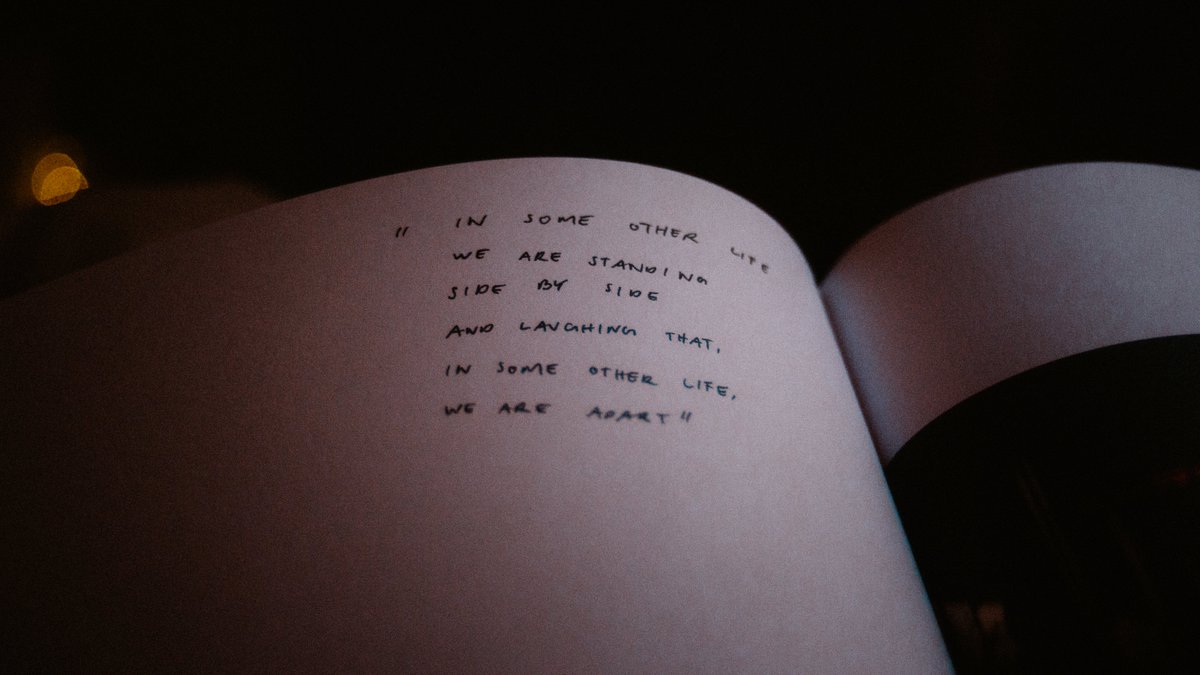 " IN SOME OTHER LIFE
WE ARE STANDING
SIDE BY SIDE
AND LAUGHING THAT,
IN SOME OTHER LIFE,
WE ARE APART"